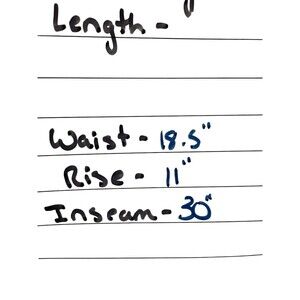 Length -
Waist - 18.5"
Rise - 11"
Inseam - 30"